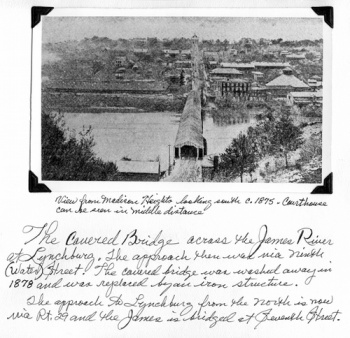 View from Madison Heights looking south c. 1875 - Courthouse
can be seen in middle distance
The Covered Bridge across the James River
at Lynchburg. The approach then was via Ninth
(Water) Street. The covered bridge was washed away in
1878 and was replaced by an iron structure.
The approach to Lynchburg from the North is now
via Rt. 29 and the James is bridged at Seventh Street.